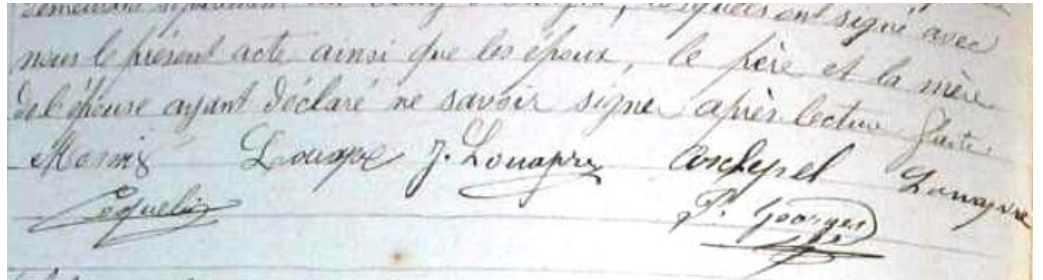 lesquels ont signé avec
nous le présent acte ainsi que les époux, le père et la mère
de l'épouse ayant déclaré ne savoir signer après lecture faite.
Louapre J. Louapre Louapre
Coquelin P. Georges